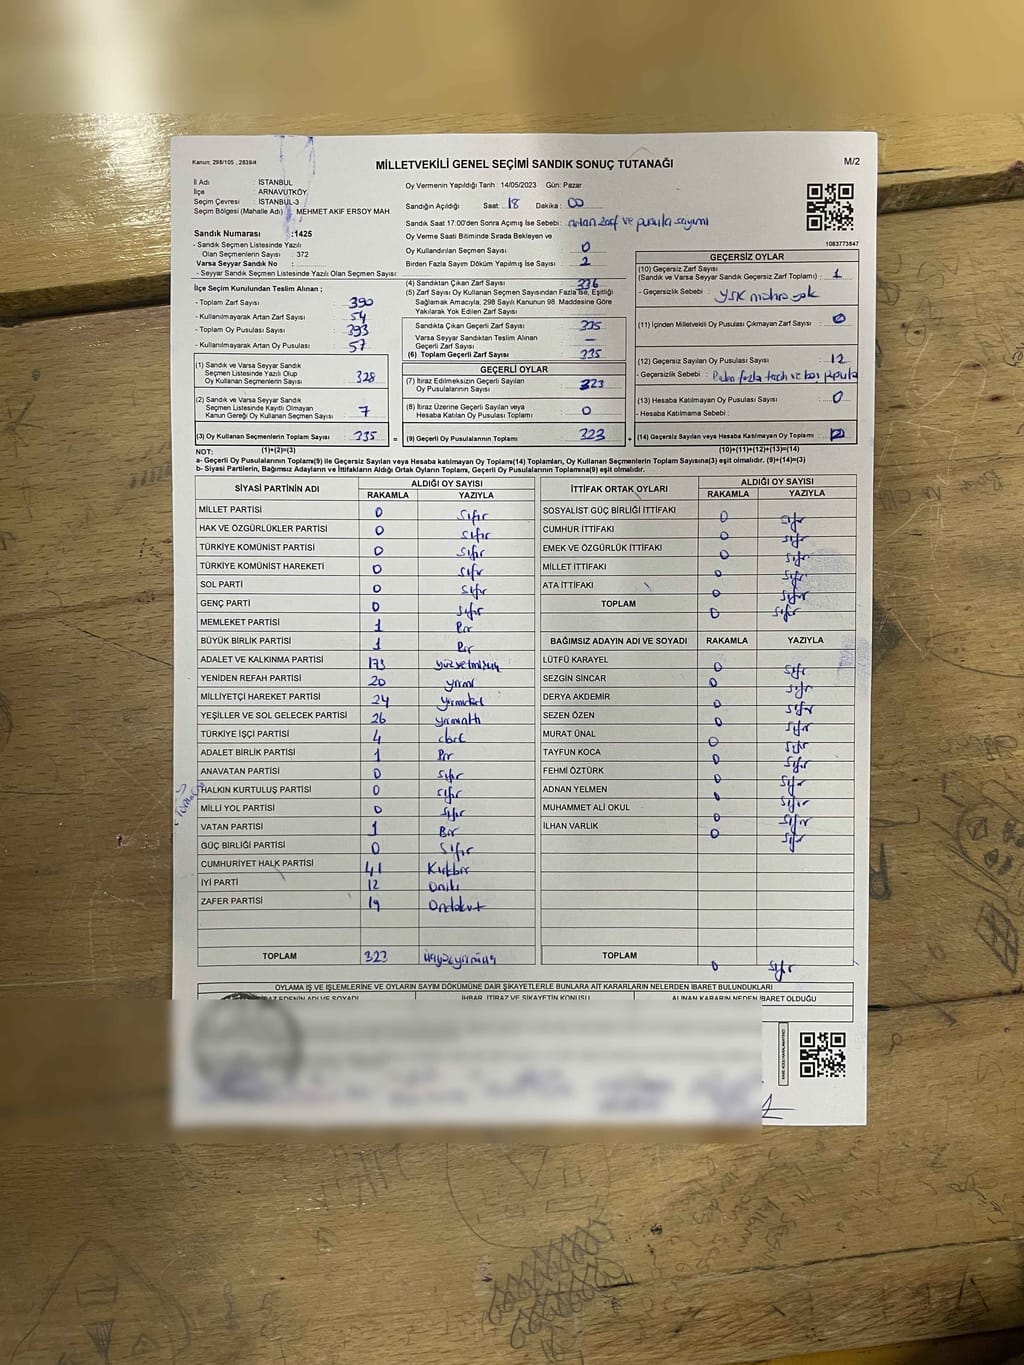 Kanun; 298/105 , 2839/4
MİLLETVEKİLİ GENEL SEÇİMİ SANDIK SONUÇ TUTANAĞI
M/2
İl Adı : İSTANBUL
İlçe : ARNAVUTKÖY
Seçim Çevresi : İSTANBUL-3
Seçim Bölgesi (Mahalle Adı) : MEHMET AKİF ERSOY MAH.
Sandık Numarası :1425
- Sandık Seçmen Listesinde Yazılı
Olan Seçmenlerin Sayısı : 372
Varsa Seyyar Sandık No :
- Seyyar Sandık Seçmen Listesinde Yazılı Olan Seçmen Sayısı:
Oy Vermenin Yapıldığı Tarih : 14/05/2023 Gün: Pazar
Sandığın Açıldığı Saat 18 Dakika : 00
Sandık Saat 17:00'den Sonra Açımış İse Sebebi: artan zarf ve pusula sayımı
Oy Verme Saati Bitiminde Sırada Bekleyen ve
Oy Kullandırılan Seçmen Sayısı : 0
Birden Fazla Sayım Döküm Yapılmış İse Sayısı : 2
1083773847
İlçe Seçim Kurulundan Teslim Alınan ;
- Toplam Zarf Sayısı : 390
- Kullanılmayarak Artan Zarf Sayısı : 54
- Toplam Oy Pusulası Sayısı : 393
- Kullanılmayarak Artan Oy Pusulası : 57
(1) Sandık ve Varsa Seyyar Sandık
Seçmen Listesinde Yazılı Olup
Oy Kullanan Seçmenlerin Sayısı : 328
(2) Sandık ve Varsa Seyyar Sandık
Seçmen Listesinde Kayıtlı Olmayan
Kanun Gereği Oy Kullanan Seçmen Sayısı : 7
(3) Oy Kullanan Seçmenlerin Toplam Sayısı : 335 =
(1)+(2)=(3)
(4) Sandıktan Çıkan Zarf Sayısı : 336
(5) Zarf Sayısı Oy Kullanan Seçmen Sayısından Fazla İse, Eşitliği
Sağlamak Amacıyla, 298 Sayılı Kanunun 98. Maddesine Göre
Yakılarak Yok Edilen Zarf Sayısı :
Sandıkta Çıkan Geçerli Zarf Sayısı : 335
Varsa Seyyar Sandıktan Teslim Alınan
Geçerli Zarf Sayısı : —
(6) Toplam Geçerli Zarf Sayısı : 335
GEÇERLİ OYLAR
(7) İtiraz Edilmeksizin Geçerli Sayılan
Oy Pusulalarının Sayısı : 323
(8) İtiraz Üzerine Geçerli Sayılan veya
Hesaba Katılan Oy Pusulası Toplamı : 0
(9) Geçerli Oy Pusulalarının Toplamı : 323 +
GEÇERSİZ OYLAR
(10) Geçersiz Zarf Sayısı
(Sandık ve Varsa Seyyar Sandık Geçersiz Zarf Toplamı) : 1
- Geçersizlik Sebebi : YSK mührü yok
(11) İçinden Milletvekili Oy Pusulası Çıkmayan Zarf Sayısı : 0
(12) Geçersiz Sayılan Oy Pusulası Sayısı : 12
- Geçersizlik Sebebi : fazla tercih ve boş pusula
(13) Hesaba Katılmayan Oy Pusulası Sayısı : 0
- Hesaba Katılmama Sebebi :
(14) Geçersiz Sayılan veya Hesaba Katılmayan Oy Toplamı : 12
(10)+(11)+(12)+(13)=(14)
NOT:
a- Geçerli Oy Pusulalarının Toplamı(9) ile Geçersiz Sayılan veya Hesaba katılmayan Oy Toplamı(14) Toplamları, Oy Kullanan Seçmenlerin Toplam Sayısına(3) eşit olmalıdır. (9)+(14)=(3)
b- Siyasi Partilerin, Bağımsız Adayların ve İttifakların Aldığı Ortak Oyların Toplamı, Geçerli Oy Pusulalarının Toplamına(9) eşit olmalıdır.
SİYASİ PARTİNİN ADI ALDIĞI OY SAYISI
RAKAMLA YAZIYLA
MİLLET PARTİSİ 0 Sıfır
HAK VE ÖZGÜRLÜKLER PARTİSİ 0 Sıfır
TÜRKİYE KOMÜNİST PARTİSİ 0 Sıfır
TÜRKİYE KOMÜNİST HAREKETİ 0 Sıfır
SOL PARTİ 0 Sıfır
GENÇ PARTİ 0 Sıfır
MEMLEKET PARTİSİ 1 Bir
BÜYÜK BİRLİK PARTİSİ 1 Bir
ADALET VE KALKINMA PARTİSİ 173 yüzyetmişüç
YENİDEN REFAH PARTİSİ 20 yirmi
MİLLİYETÇİ HAREKET PARTİSİ 24 yirmidört
YEŞİLLER VE SOL GELECEK PARTİSİ 26 yirmialtı
TÜRKİYE İŞÇİ PARTİSİ 4 dört
ADALET BİRLİK PARTİSİ 1 Bir
ANAVATAN PARTİSİ 0 sıfır
HALKIN KURTULUŞ PARTİSİ 0 sıfır
MİLLİ YOL PARTİSİ 0 sıfır
VATAN PARTİSİ 1 Bir
GÜÇ BİRLİĞİ PARTİSİ 0 Sıfır
CUMHURİYET HALK PARTİSİ 41 Kırkbir
İYİ PARTİ 12 Oniki
ZAFER PARTİSİ 19 Ondokuz
TOPLAM 323 üçyüzyirmiüç
İTTİFAK ORTAK OYLARI ALDIĞI OY SAYISI
RAKAMLA YAZIYLA
SOSYALİST GÜÇ BİRLİĞİ İTTİFAKI 0 sıfır
CUMHUR İTTİFAKI 0 sıfır
EMEK VE ÖZGÜRLÜK İTTİFAKI 0 sıfır
MİLLET İTTİFAKI 0 sıfır
ATA İTTİFAKI 0 sıfır
TOPLAM 0 sıfır
BAĞIMSIZ ADAYIN ADI VE SOYADI RAKAMLA YAZIYLA
LÜTFÜ KARAYEL 0 sıfır
SEZGİN SİNCAR 0 sıfır
DERYA AKDEMİR 0 sıfır
SEZEN ÖZEN 0 sıfır
MURAT ÜNAL 0 sıfır
TAYFUN KOCA 0 sıfır
FEHMİ ÖZTÜRK 0 sıfır
ADNAN YELMEN 0 sıfır
MUHAMMET ALİ OKUL 0 sıfır
İLHAN VARLIK 0 sıfır
TOPLAM 0 sıfır
OYLAMA İŞ VE İŞLEMLERİNE VE OYLARIN SAYIM DÖKÜMÜNE DAİR ŞİKAYETLERLE BUNLARA AİT KARARLARIN NELERDEN İBARET BULUNDUKLARI
İHBAR, İTİRAZ VE ŞİKAYETİN KONUSU ALINAN KARARIN NEDEN İBARET OLDUĞU